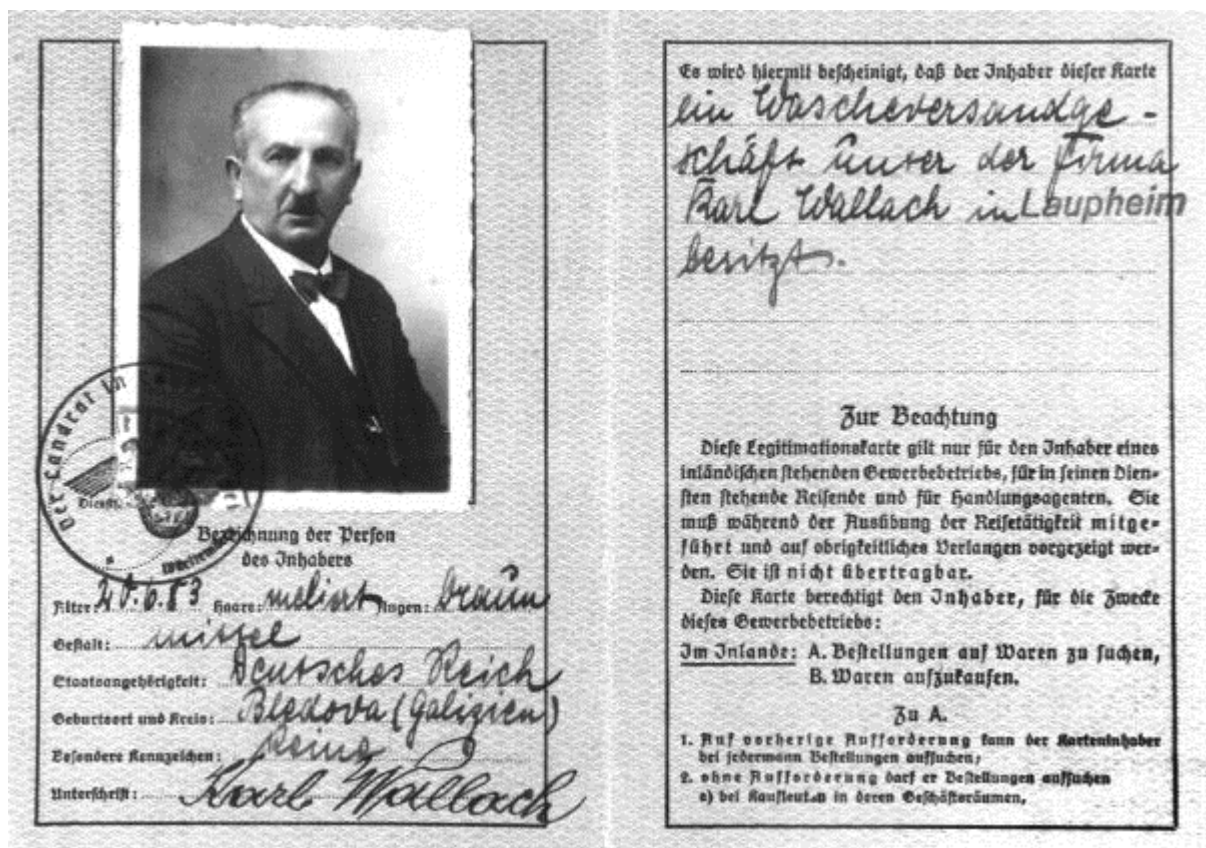 Der Landrat in
Dienst
Württem
Bezeichnung der Person
des Inhabers
Alter: 20.6.83 Haare: meliert Augen: braun
Gestalt: mittel
Staatsangehörigkeit: Deutsches Reich
Geburtsort und Kreis: Bledova (Galizien)
Besondere Kennzeichen: keine
Unterschrift: Karl Wallach
Es wird hiermit bescheinigt, daß der Inhaber dieser Karte
ein Wäscheversandge-
schäft unter der Firma
Karl Wallach in Laupheim
besitzt.
Zur Beachtung
Diese Legitimationskarte gilt nur für den Inhaber eines
inländischen stehenden Gewerbebetriebs, für in seinen Dien-
sten stehende Reisende und für Handlungsagenten. Sie
muß während der Ausübung der Reisetätigkeit mitge-
führt und auf obrigkeitliches Verlangen vorgezeigt wer-
den. Sie ist nicht übertragbar.
Diese Karte berechtigt den Inhaber, für die Zwecke
dieses Gewerbebetriebs:
Im Inlande: A. Bestellungen auf Waren zu suchen,
B. Waren aufzukaufen.
Zu A.
1. Auf vorherige Aufforderung kann der Karteninhaber
bei jedermann Bestellungen aufsuchen;
2. ohne Aufforderung darf er Bestellungen aufsuchen
a) bei Kaufleuten in deren Geschäftsräumen,